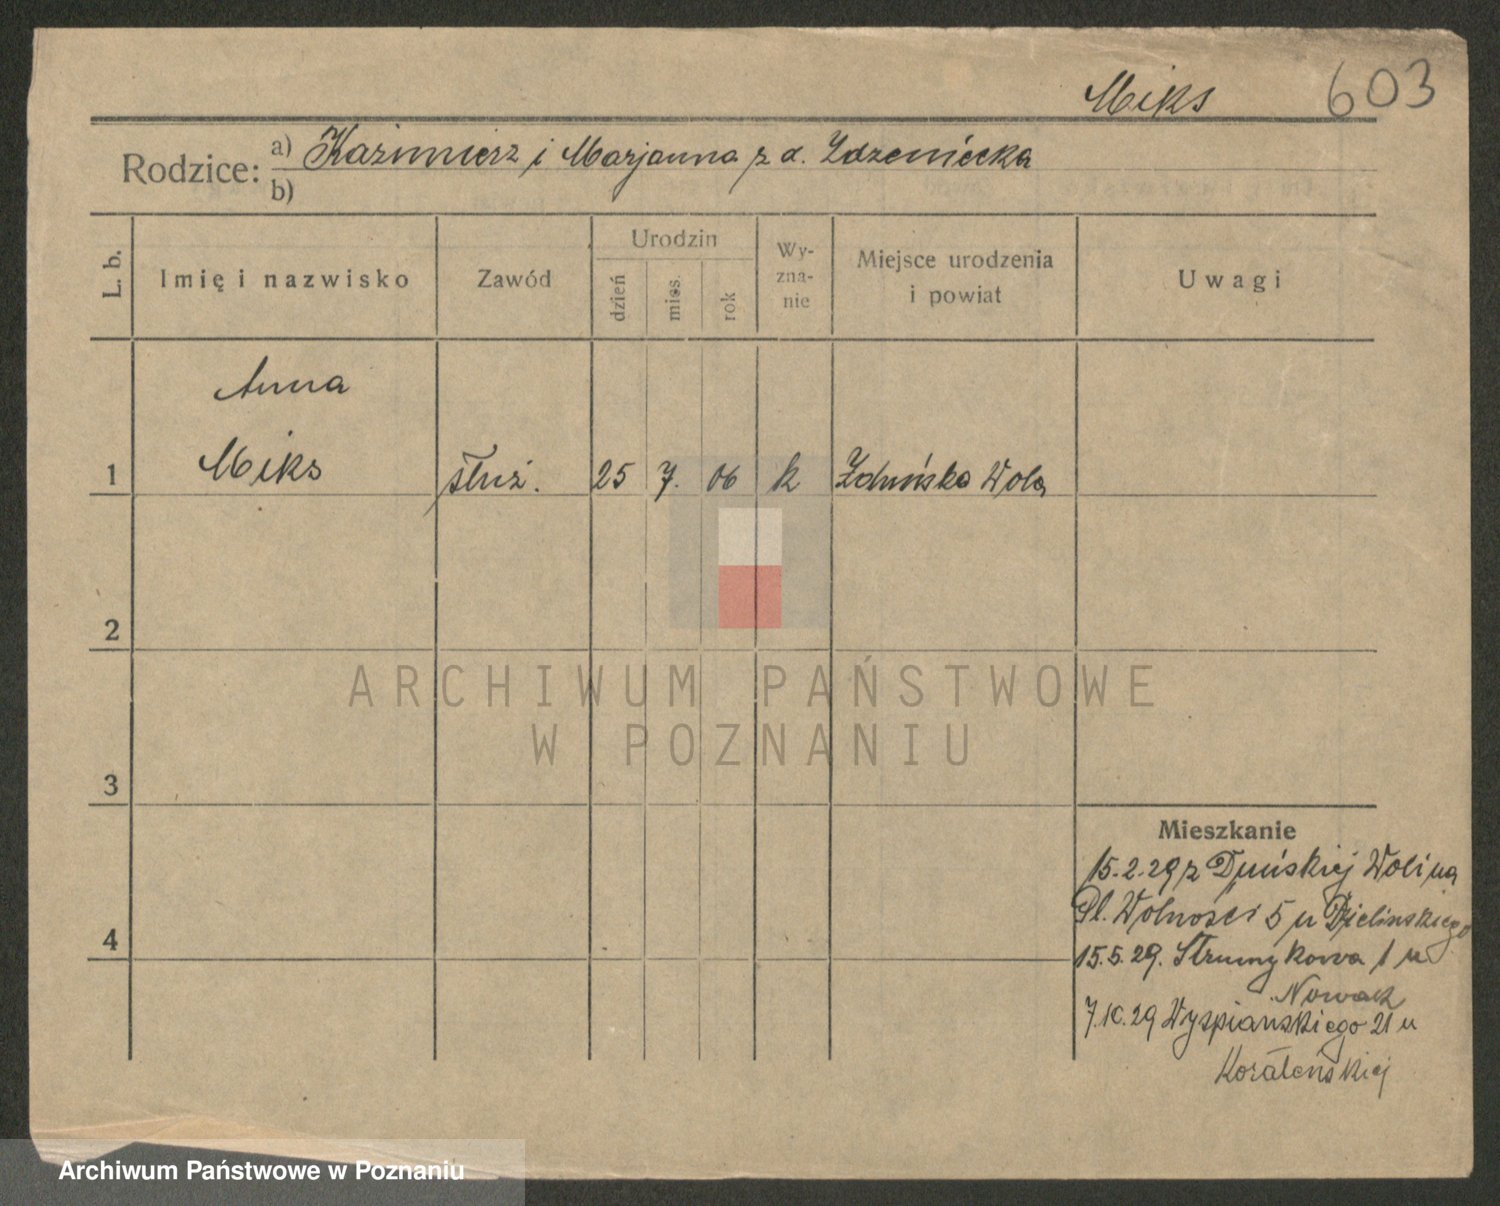 Miks 603
Rodzice: a) Kazimierz i Marjanna z d. Zdzeniecka
b)
L. b.
Imię i nazwisko
Zawód
Urodzin
dzień
mies.
rok
Wy-
zna-
nie
Miejsce urodzenia
i powiat
Uwagi
Anna
1 Miks służ. 25 7. 06 k Zduńska Wola
2
ARCHIWUM PAŃSTWOWE
W POZNANIU
3
Mieszkanie
15.2.29 z Duńskiej Woli na
Pl. Wolności 5 u Dzielinskiego
4
15.5.29. Strumykowa 1 u
Nowak
7.10.29 Wyspianskiego 21 u
Archiwum Państwowe w Poznaniu